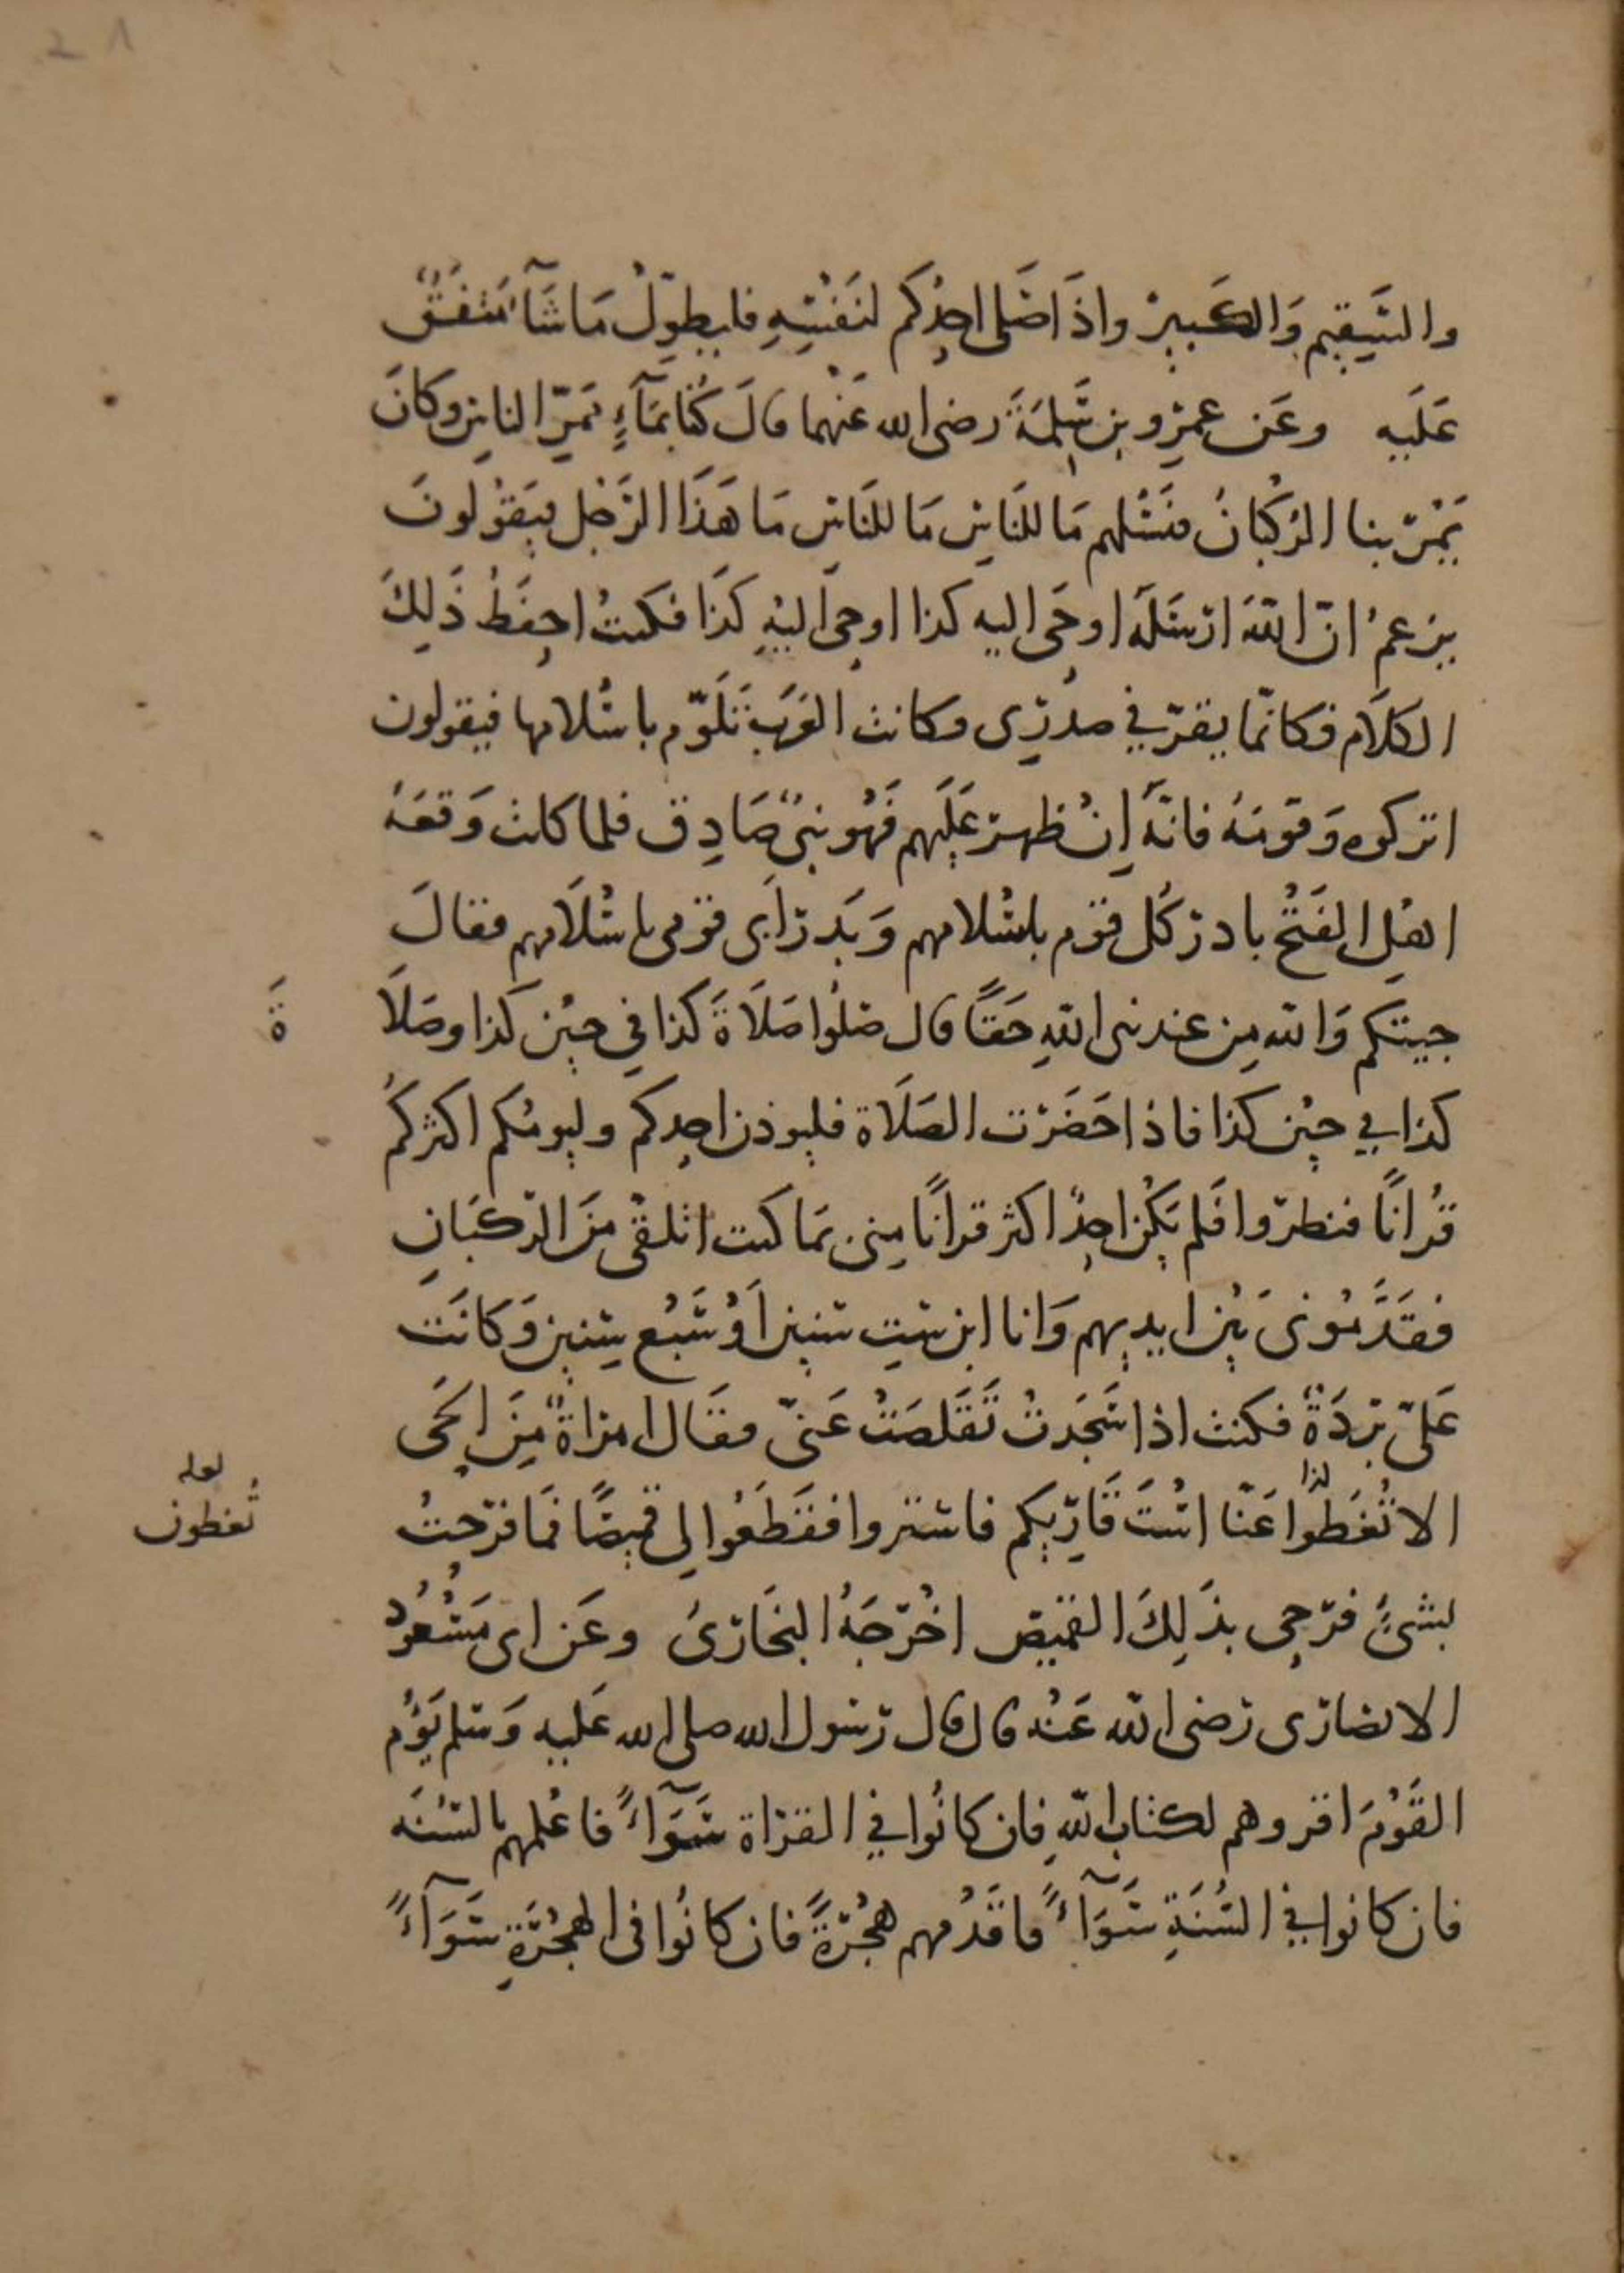 والسَّقِيم وَالكَبِير واذَا صَلى احدُكم لنَفْسِهِ فليطوِّلْ مَا شَآءَ مُتفَقٌ
عَلَيه وعَن عمرِو بن سَلِمَةَ رضى الله عَنهُما قالَ كُنّا بمَآءٍ مَمَرِّ الناسِ وكانَ
يَمُرّ بنا الرُكبانُ فنَسْئلهم مَا للنَاسِ مَا للنَاسِ مَا هَذَا الرَجُل فيَقُولونَ
يزعمُ انّ اللهَ ارْسَلَه اوحَى اليه كذا اوحىَ اليْهِ كذَا فكنتُ احفَظُ ذَلِكَ
الكلَام فكانّما يقرّ في صدرِى وكانت العَرَب تَلَوّم باسْلامها فيقولون
اتركوه وَقومَهُ فانّهُ اِنْ ظهر عَلَيهم فَهُو نبىٌ صَادِق فلما كانت وَقعَهُ
اهْلِ الفَتْح بادر كُل قوم باسْلامهم وَبَدر اَبى قومى باسْلَامهم فقالَ
جيتكم وَالله مِن عند نبى اللهِ حَقاً قال صَلُوا صَلَاةَ كذا فِي حِيْن كَذا وصَلَا
ةَ
كذا في حِيْن كذا فاذا حَضَرَت الصَلَاة فليوذن احدكم وليومُكم اكثركُم
قُرانًا فنطروا فَلم يَكُن احدٌ اكثر قرانًا مِنى بمَا كنت اتلقّى مِنَ الرّكبَانِ
فقَدَّمُونى بَيْنَ ايديهم وَانا ابن سِتِ سنين اَوْ سَبْع سِنين وَكانَت
عَلىّ بُردَةٌ فكنت اذا سَجَدتُ تَقَلصَتْ عَنّى فقَال امراةٌ مِنَ الحَى
الا تُغَطُوا عَنّا اسْتَ قَارِيكم فاشتروا فقَطَعُوا لِى قميصًا فمَا فرحتُ
كذا
لعله
تُغطون
بشىءٍ فرَحِى بذَلِكَ القميص اخْرَجَهُ البخَارىُ وعَن ابى مَسْعُود
الانصارى رَضى الله عَنْهُ قال قال رَسُول الله صلى الله عَليه وَسَلم يَؤُم
القَوْمَ اقروهم لكتاب اللهِ فان كانُوا في القراة سَوَآءً فاعْلمهم بالسُنَه
فان كانوا في السُنَةِ سَوَآءً فاقَدْمهم هِجْرَةً فان كانُوا فى الهِجْرَةِ سَوَآءً